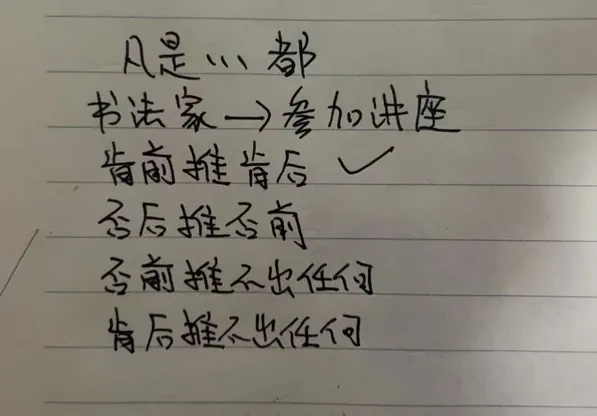 凡是…都
书法家→参加讲座
肯前推肯后 ✓
否后推否前
否前推不出任何
肯后推不出任何